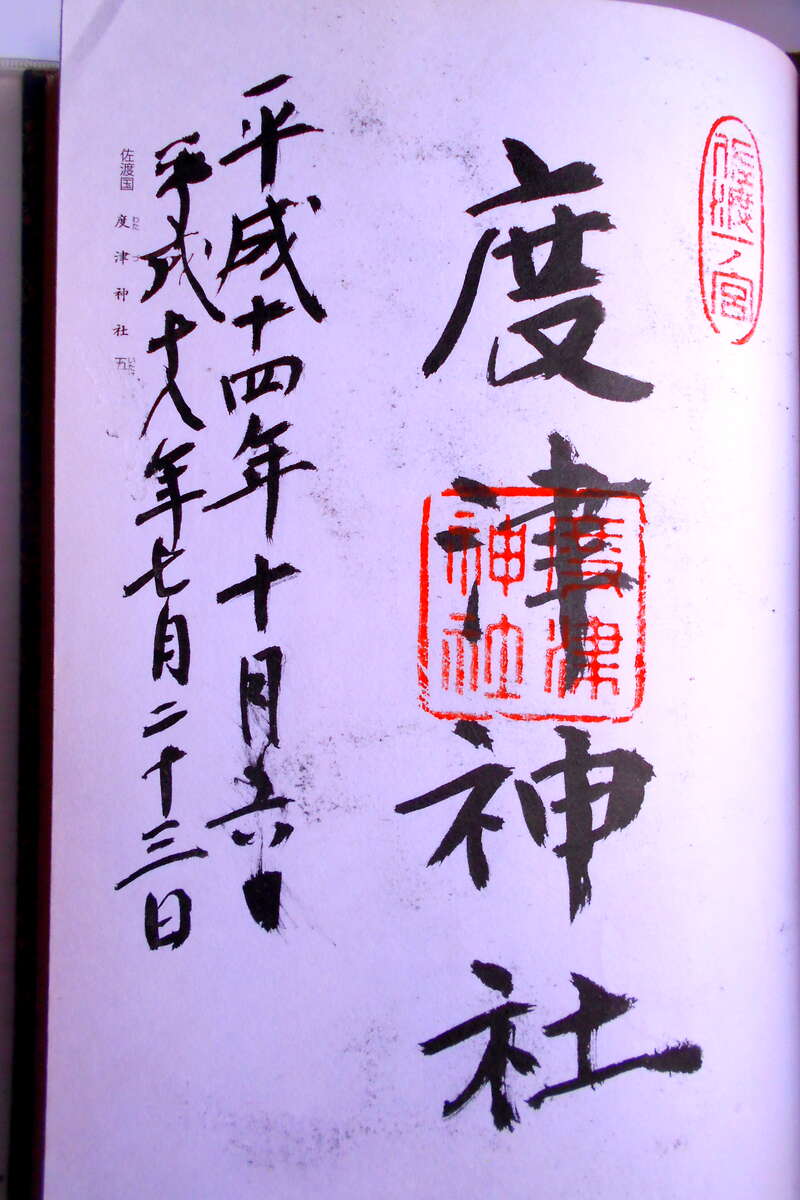 佐渡一ノ宮
度津神社
度津神社
平成十四年十月六日
平成十八年七月二十三日
佐渡国 度津神社 五
わたつ